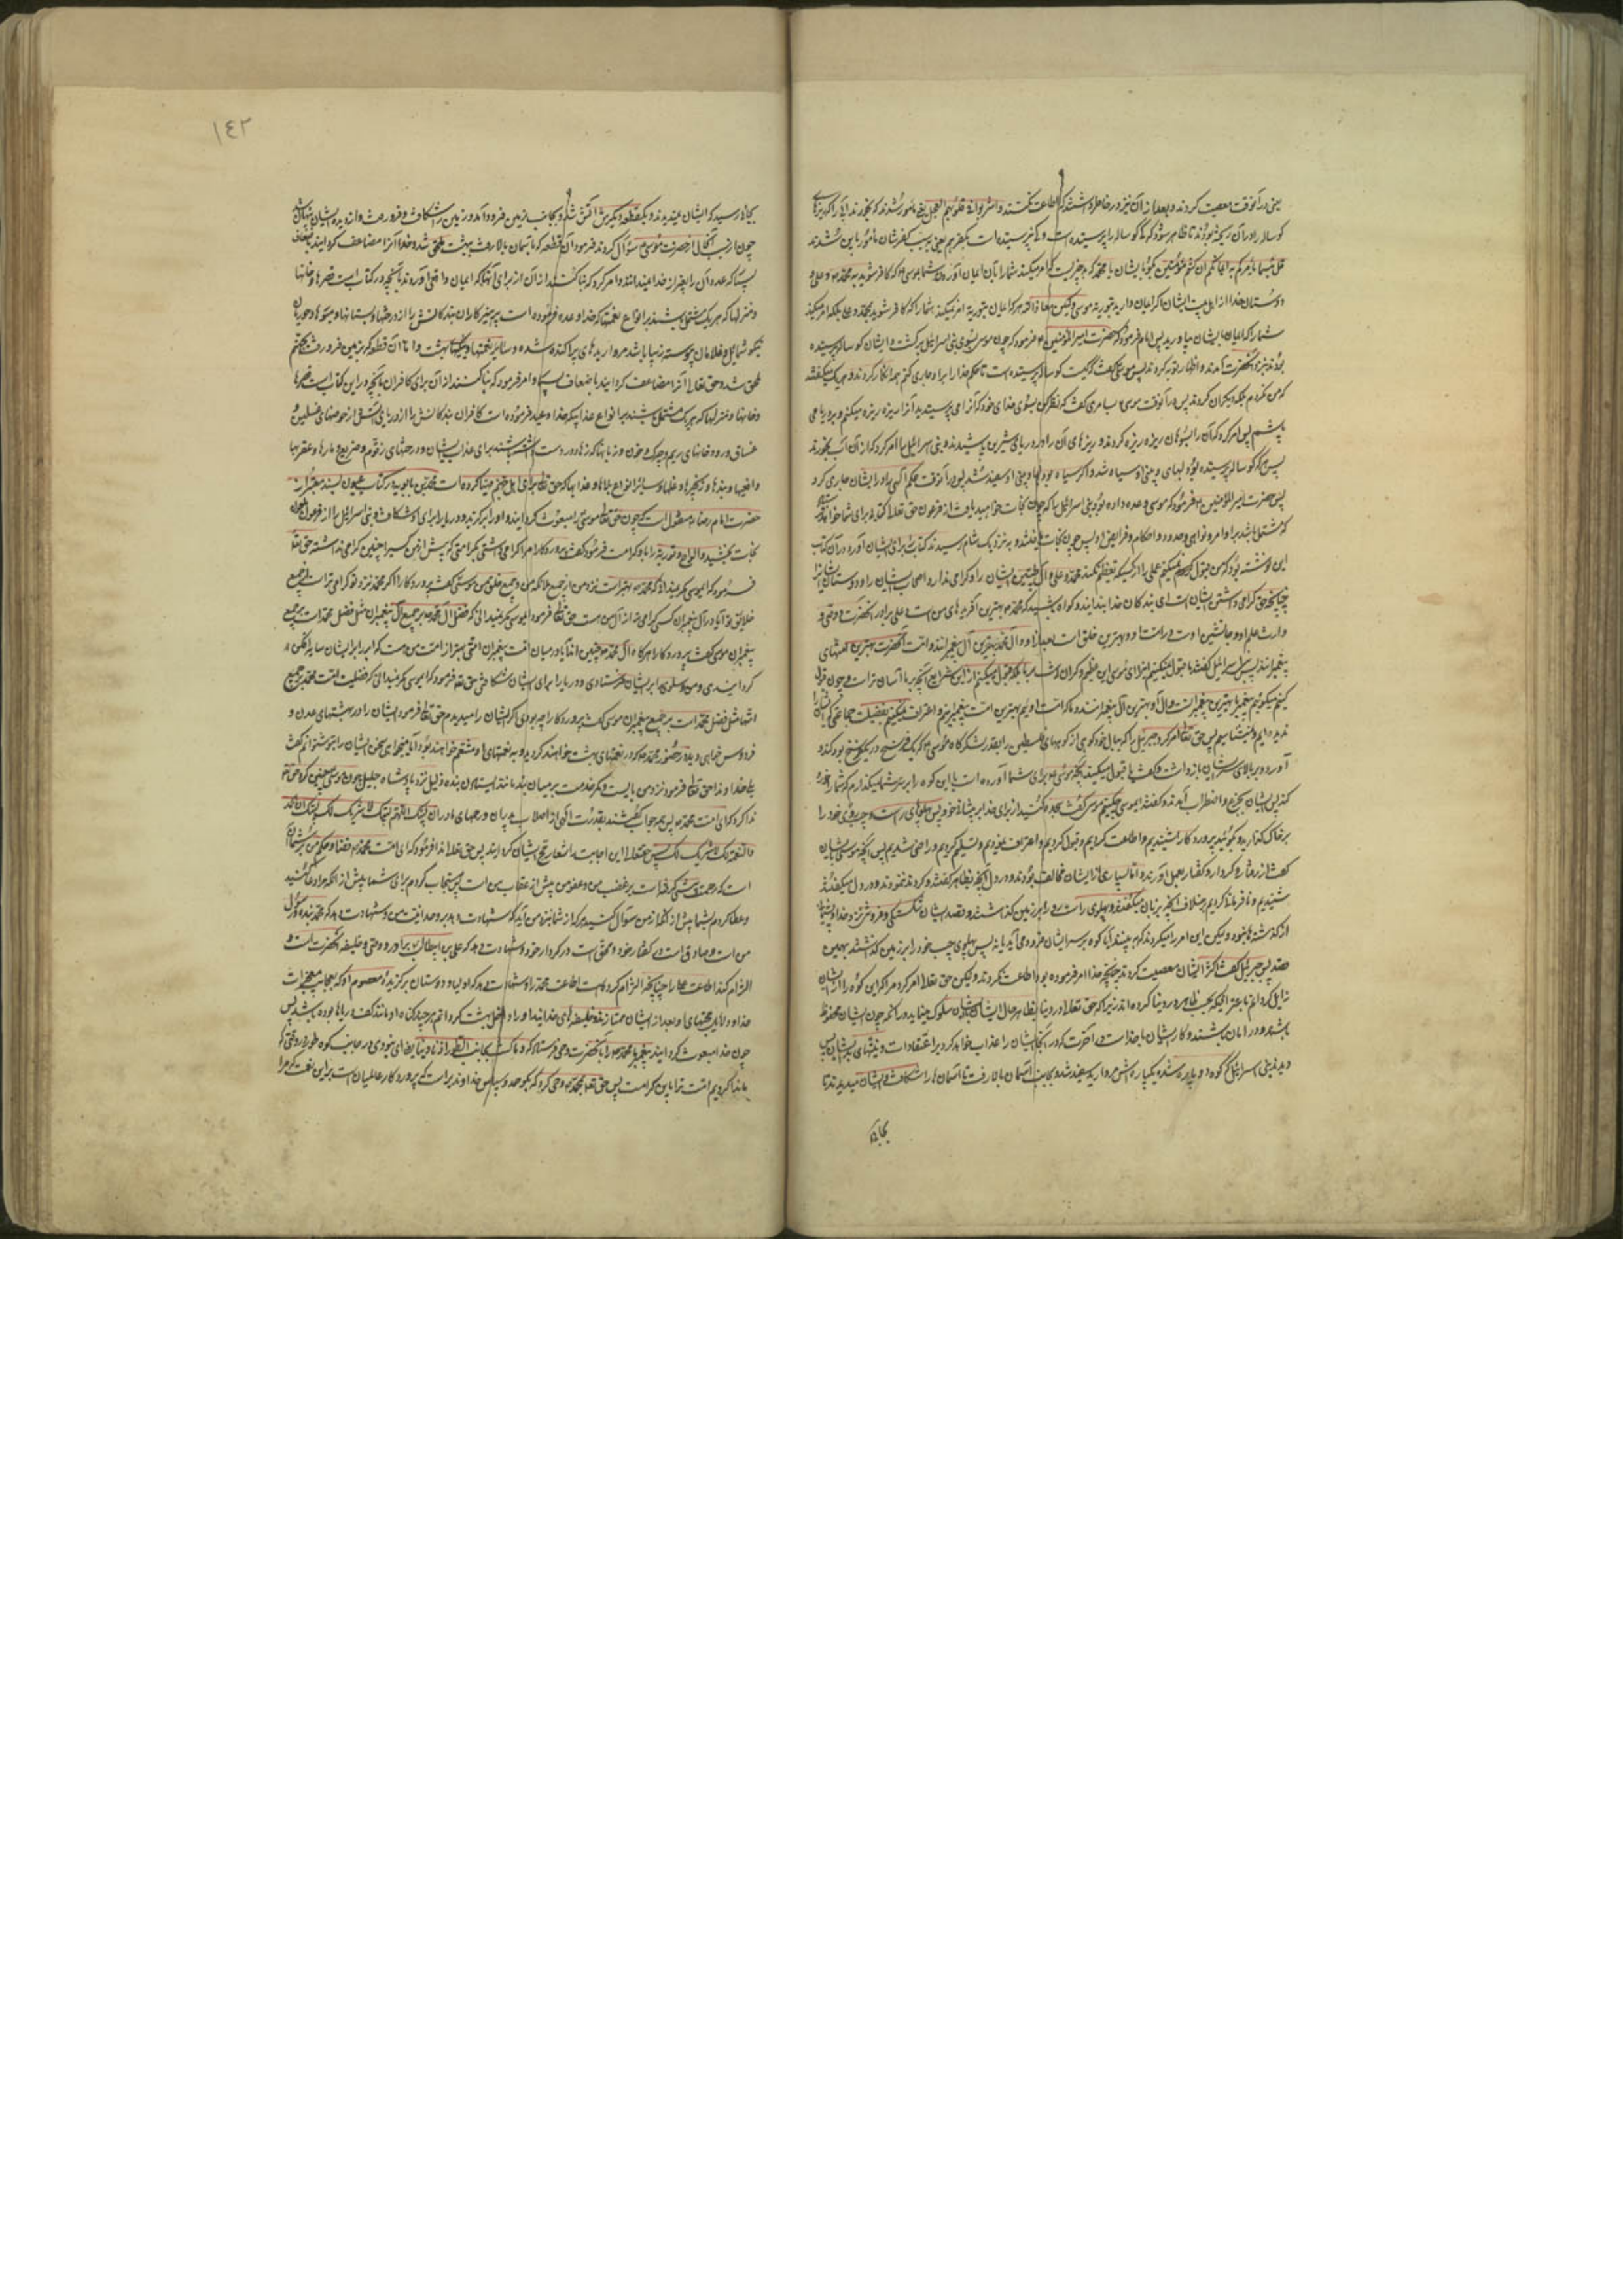 یعنی در آنوقت معصیت کردند و بعد از آن نیز در خاطر داشتند که اطاعت نکنند و اشربوا فی قلوبهم العجل یعنی مامور شدند که بخورند
کوساله را در آن ریخته بودند تا ظاهر شود که که کوساله را پرستیده است و که نپرستیده است بکفرهم یعنی بسبب کفرشان مأمور باین شدند
قل بئسما یأمرکم به ایمانکم ان کنتم مؤمنین بگو با ایشان یا محمد که بد چیزیست که امر میکند شما را بآن ایمان آوردن شما بموسی که کافر شوید به محمد و علی و
دوستان خدا از اهل بیت ایشان
شما را که ایمان بایشان بیاورید پس امام فرمود که حضرت امیر المؤمنین فرمود که چون موسی بسوی بنی اسرائیل برگشت و ایشان کوساله پرستیده
بودند بنزد آنحضرت آمدند و اظهار توبه کردند پس موسی گفت که کیست کوساله پرستیده است تا حکم خدا را بر او جاری کنم همه انکار کردند و هر یک میگفتند
که من نکردم بلکه دیگران کردند پس در آنوقت موسی بسامری گفت که نظر کن بسوی خدای خود که آنرا می پرستیدی آنرا ریزه ریزه میکنم و بدریا می
پاشم پس امر کرد که آن را بسوهان ریزه ریزه کردند و ریزهای آن را در دریای شیرین پاشیدند و بنی اسرائیل را امر کرد که از آن آب بخورند
پس هر که کوساله پرستیده بود لبهای و بینی او سیاه شد و اگر سیاه بود لبها و بینی او سفید شد پس در آنوقت حکم الهی را در ایشان جاری کرد
پس حضرت امیر المؤمنین فرمود که موسی وعده داده بود بنی اسرائیل را که چون نجات خواهید یافت از فرعون حق تعالی کتابی برای شما خواهد
که مشتمل باشد بر اوامر و نواهی و حدود و احکام و فرایض او پس چون نجات یافتند و بنزدیک شام رسیدند کتاب برای ایشان آورد در آن کتاب
این نوشته بود که من قبول نمیکنم عملی را از کسیکه تعظیم نکند محمد و علی و آل طیبین ایشان را و گرامی ندارد اصحاب ایشان را و دوستان
چنانچه حق گرامی داشتن ایشان است ای بندگان خدا بدانید و گواه باشید که محمد بهترین آفریدهای من است و علی برادر آنحضرت و وصی و
وارث علم او و جانشین اوست در امت او و بهترین خلق است بعد از او و آل محمد بهترین آل پیغمبرانند و امت آنحضرت بهترین امتهای
پیغمبرانند پس بنی اسرائیل گفتند ما قبول نمیکنیم اینرا ای موسی این عظیم و گران است بر ما بلکه قبول میکنیم از این شرایع آنچه بر ما آسان تر است و چون قبول
کنیم میگوئیم پیغمبر ما بهترین پیغمبرانست و آل او بهترین آل پیغمبرانند و ما که امت اوئیم بهترین امت پیغمبرانیم و اعتراف نمیکنیم بفضیلت جماعتی که
ندیده ایم و نمیشناسیم پس حق تعالی امر کرد جبرئیل را که ببال خود کوهی از کوههای فلسطین را بقدر لشکرگاه موسی که یک فرسخ در یک فرسخ بود کند و
آورد و بر بالای سر ایشان بازداشت و گفت یا قبول میکنید آنچه موسی برای شما آورده است یا این کوه را بر سر شما میگذارم که شما را خورد
کند پس ایشان بجزع و اضطراب آمدند و گفتند ای موسی چه کنیم موسی گفت سجده کنید از برای خدا بر پیشانی خود پس پهلوی راست و چپ روی خود را
بر خاک گذارید و بگوئید پروردگارا شنیدیم و اطاعت کردیم و قبول کردیم و اعتراف نمودیم و تسلیم کردیم و راضی شدیم پس آنچه موسی بایشان
گفت از گفتار و کردار و گفتار بعمل آوردند و اما بسیاری از ایشان مخالف بودند و در دل آنچه بظاهر گفتند و کردند نمودند و در دل میگفتند
شنیدیم و نافرمانی کردیم بر خلاف آنچه بزبان میگفتند و پهلوی راست رو را بر زمین گذاشتند و قصد ایشان شکستگی و فروتنی نزد خدا و پشیمانی
از گذشتهها نبود ولیکن این امر را میکردند که ببینند آیا کوه بر سر ایشان فرود می آید یا نه پس پهلوی چپ خود را بر زمین گذاشتند بهمین
قصد پس جبرئیل گفت که اکثر ایشان معصیت کردند چنانچه خدا امر فرموده بود اطاعت نکردند ولیکن حق تعالی امر کرد مرا که این کوه را از ایشان
زایل گردانم باعتراف آنکه بحسب ظاهر در دنیا کرده اند زیرا که حق تعالی در دنیا بظاهر حال ایشان با ایشان سلوک مینماید در آنکه خون ایشان محفوظ
باشد و در امان باشند و کار ایشان با خداست در آخرت که در آنجا ایشان را عذاب خواهد کرد بر اعتقادات و نیتهای بد ایشان پس
دیدند بنی اسرائیل که کوه دو پاره شد و یکپاره اش مروارید سفید شد و بجانب آسمان بالا رفت تا آسمان ها را شکافت و ایشان میدیدند تا
بجائی
۱۴۲
بجائی رسید که ایشان نمیدیدند و یکقطعه دیگرش آتش شد و بجانب زمین فرود آمد و زمین را شکافت و فرو رفت و از دیده ایشان پنهان شد
چون از سبب آنحال از حضرت موسی سؤال کردند فرمود آن قطعه که بآسمان بالا رفت ببهشت ملحق شد و خدا آنرا مضاعف گردانید باضعاف
بسیار که عدد آن را بغیر از خدا نمیداند و امر کرد که بنا کنند از آن از برای آنها که ایمان واقعی آوردند بآنچه در کتاب است قصرها و خانها
و منزلها که هر یک مشتمل باشند بر انواع نعمتها که خدا وعده فرموده است پرهیزکاران بندگانش را از درختها و بستانها و میوها و حوریان
نیکو شمایل و غلامان پیوسته زیبا باشند مرواریدهای پراکنده شده و سایر نعمتها و نیکیهای بهشت و اما آن قطعه که بزمین فرو رفت بجهنم
ملحق شد و حق تعالی آنرا مضاعف گردانید باضعاف بسیار و امر فرمود که بنا کنند از آن برای کافران بآنچه در این کتاب است قصرها
و خانها و منزلها که هر یک مشتمل باشند بر انواع عذابیکه خدا وعید فرموده است کافران بندگانش را از دریای آتش از حوضهای غسلین و
غساق و رودخانهای ریم و چرک و خون و زبانیها که گرزها در دست داشته باشند برای عذاب ایشان و درختهای زقوم و ضریع و مارها و عقربها
و افعیها و بندها و زنجیرها و غلها و سایر انواع بلاها و عذابها که حق تعالی برای اهل جهنم مهیا کرده است محمد بن بابویه در کتاب عیون بسند معتبر از
حضرت امام رضا منقول است که چون حق تعالی موسی را مبعوث گردانید و او را برگزید و دریا را برای او شکافت و بنی اسرائیل را از فرعون
نجات بخشید و الواح و توریة را باو کرامت فرمود گفت پروردگارا مرا گرامی داشتی بکرامتی که پیش از من کسی را چنین گرامی نداشته حق تعالی
فرمود که ای موسی مگر نمیدانی که محمد بهتر است نزد من از جمیع ملائکه من و جمیع خلق من موسی گفت پروردگارا اگر محمد نزد تو گرامی تر است از جمیع
خلائق تو آیا در آل پیغمبران کسی گرامی تر از آل من هست حق تعالی فرمود ای موسی مگر نمیدانی که فضل آل محمد بر جمیع آل پیغمبران مثل فضل محمد است بر جمیع
پیغمبران موسی گفت پروردگارا هرگاه آل محمد چنین اند آیا در میان امت پیغمبران امتی بهتر از امت من هست که ابر را بر ایشان سایه افکن
گردانیدی و من و سلوی بر ایشان فرستادی و دریا را برای ایشان شکافتی حق تعالی فرمود که ای موسی مگر نمیدانی که فضیلت امت محمد بر جمیع
امتها مثل فضل محمد است بر جمیع پیغمبران موسی گفت پروردگارا چه بودی اگر ایشان را میدیدم حق تعالی فرمود ایشان را در بهشتهای عدن و
فردوس خواهی دید در حضور محمد که در نعمتهای بهشت خواهند گردید و به نعمتهای او متنعم خواهند بود آیا میخواهی سخن ایشان را بتو بشنوانم گفت
بلی خداوندا حق تعالی فرمود نزد من بایست و کمر خدمت بر میان بند مانند ایستادن بنده ذلیل نزد پادشاه جلیل چون موسی چنین کرد حق تعالی
ندا کرد که ای امت محمد پس همه جواب گفتند بقدرت الهی از اصلاب پدران و رحمهای مادران لبیک اللهم لبیک لا شریک لک لبیک ان الحمد
و النعمة لک لا شریک لک پس حقتعالی این اجابت را شعار حج ایشان گردانید پس حق تعالی ندا فرمود که ای امت محمد قضا و حکم من بر شما آن
است که رحمت من پیشی گرفته است بر غضب من و عفو من پیش از عقاب من است پس مستجاب کردم برای شما پیش از آنکه مرا دعا کنید
و عطا کردم بشما پیش از آنکه از من سؤال کنید هر که از شما نزد من آید که شهادت دهد بر وحدانیت من و شهادت دهد که محمد بنده و رسول
من است و صادق است در گفتار خود و محق است در کردار خود و شهادت دهد که علی بن ابیطالب برادر و وصی و خلیفه آنحضرت است و
الزام کند اطاعت علی را چنانچه الزام کرده است اطاعت محمد را و شهادت دهد که اولیا و دوستان برگزیده معصوم او که بعجایب معجزات
خدا و دلایل حجتهای او بعد از ایشان ممتازند خلیفهای خدایند او را داخل بهشت گردانم هر چند گناه او مانند کف دریاها بوده باشد پس
چون خدا مبعوث گردانید پیغمبر ما محمد را بآنحضرت وحی فرستاد که و ما کنت بجانب الطور اذ نادینا یعنی ای نبودی در جانب کوه طور در وقتی که
ما ندا کردیم امت ترا باین کرامت پس حق تعالی بمحمد وحی کرد که بگو حمد و سپاس خداوندیراست که پروردگار عالمیان است بر این نعمت که مرا